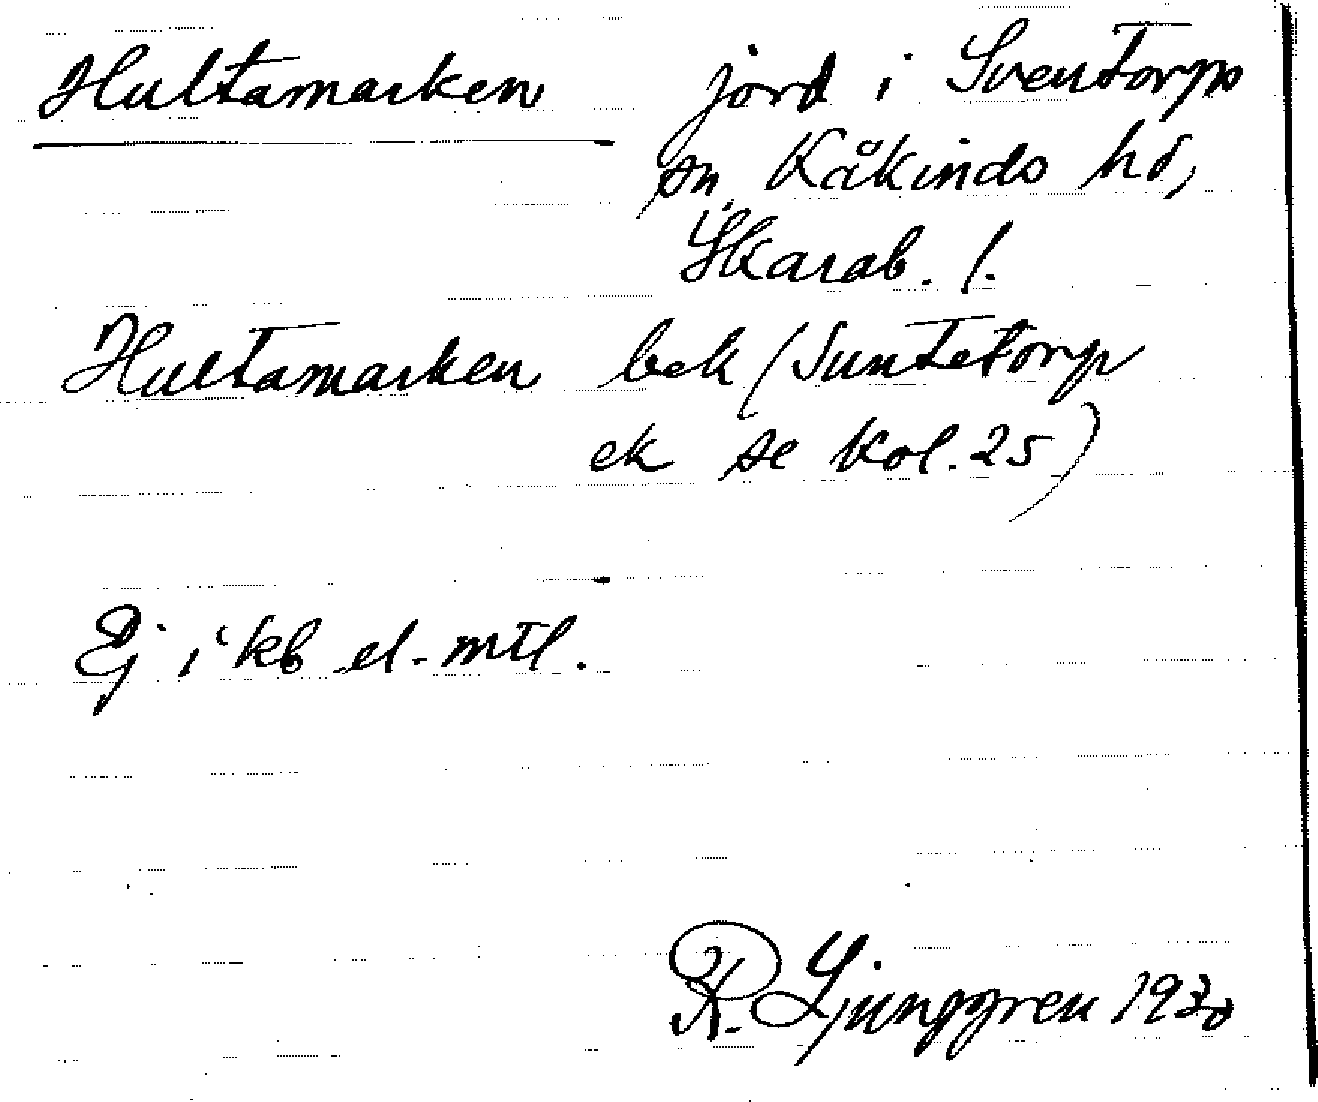 Hultamarken jord i Sventorps
sn. Kåkinds hd,
Skarab. l.
Hultamarken bek (Suntetorp
ek se kol. 25)
Ej i kb el. mtl.
R. Ljunggren 1930